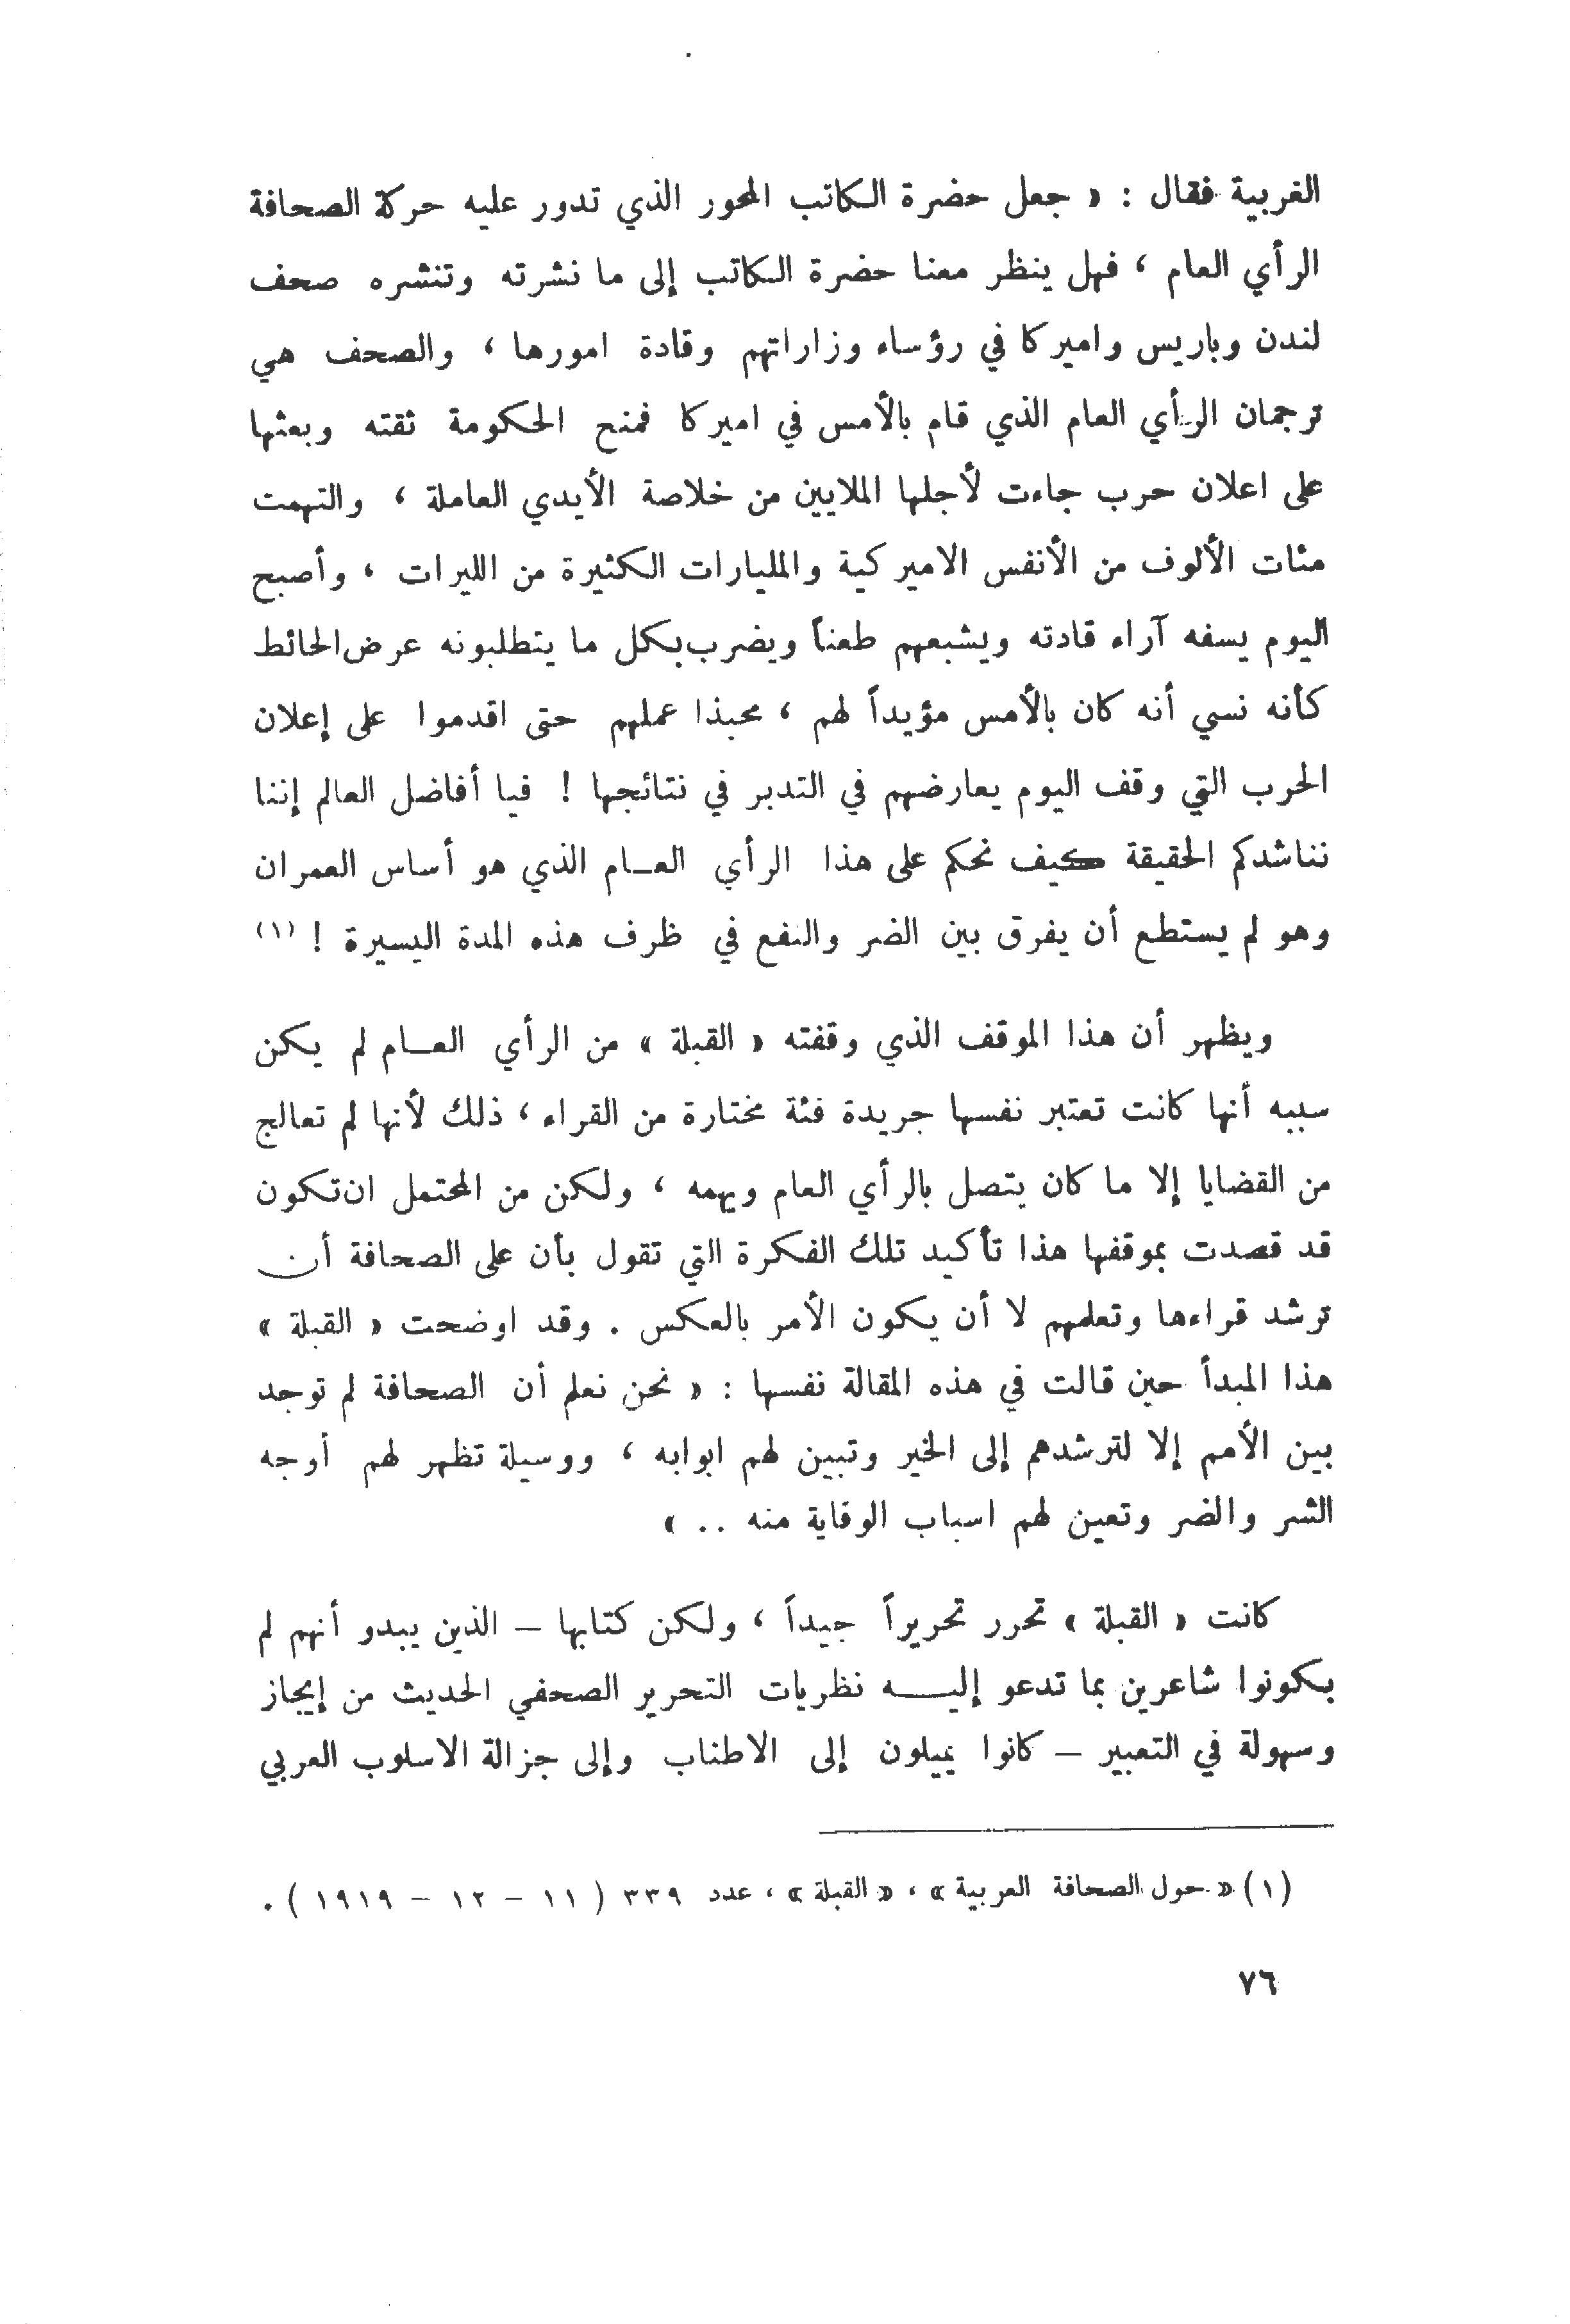 الغربية فقال : « جعل حضرة الكاتب المحور الذي تدور عليه حركة الصحافة
الرأي العام ، فهل ينظر معنا حضرة الكاتب إلى ما نشرته وتنشره صحف
لندن وباريس واميركا في رؤساء وزاراتهم وقادة امورها ، والصحف هي
ترجمان الرأي العام الذي قام بالأمس في اميركا فمنح الحكومة ثقته وبعثها
على اعلان حرب جاءت لأجلها الملايين من خلاصة الأيدي العاملة ، والتهمت
مئات الألوف من الأنفس الاميركية والمليارات الكثيرة من الليرات ، وأصبح
اليوم يسفه آراء قادته ويشبعهم طعناً ويضرب بكل ما يتطلبونه عرض الحائط
كأنه نسي أنه كان بالأمس مؤيداً لهم ، محبذا عملهم حتى اقدموا على إعلان
الحرب التي وقف اليوم يعارضهم في التدبر في نتائجها ! فيا أفاضل العالم إننا
نناشدكم الحقيقة كيف نحكم على هذا الرأي العـام الذي هو أساس العمران
وهو لم يستطع أن يفرق بين الضر والنفع في ظرف هذه المدة اليسيرة ! (١)
ويظهر أن هذا الموقف الذي وقفته « القبلة » من الرأي العـام لم يكن
سببه أنها كانت تعتبر نفسها جريدة فئة مختارة من القراء ، ذلك لأنها لم تعالج
من القضايا إلا ما كان يتصل بالرأي العام ويهمه ، ولكن من المحتمل ان تكون
قد قصدت بموقفها هذا تأكيد تلك الفكرة التي تقول بأن على الصحافة أن
ترشد قراءها وتعلمهم لا أن يكون الأمر بالعكس . وقد اوضحت « القبلة »
هذا المبدأ حين قالت في هذه المقالة نفسها : « نحن نعلم أن الصحافة لم توجد
بين الأمم إلا لترشدهم إلى الخير وتبين لهم ابوابه ، ووسيلة تظهر لهم أوجه
الشر والضر وتعين لهم اسباب الوقاية منه .. »
كانت « القبلة » تحرر تحريراً جيداً ، ولكن كتابها – الذين يبدو أنهم لم
يكونوا شاعرين بما تدعو إليـــه نظريات التحرير الصحفي الحديث من إيجاز
وسهولة في التعبير – كانوا يميلون إلى الاطناب وإلى جزالة الاسلوب العربي
(١) « حول الصحافة العربية » ، « القبلة » ، عدد ٣٣٩ ( ١١ – ١٢ – ١٩١٩ ) .
٧٦